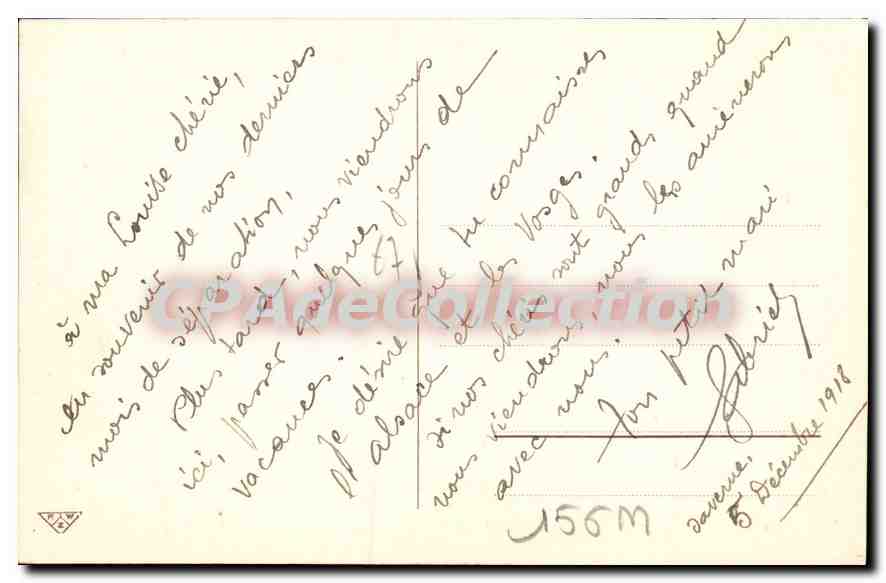 à ma Louise chérie,
en souvenir de nos derniers
mois de séparation,
Plus tard, nous viendrons
ici, passer quelques jours de
vacances.
Je désire que tu connaisses
Alsace et les Vosges.
si nos chéris sont grands quand
nous viendrons, nous les amènerons
avec nous.
Ton petit mari
Gabriel
Saverne,
5 Décembre 1918
67
156M
CPAdeCollection